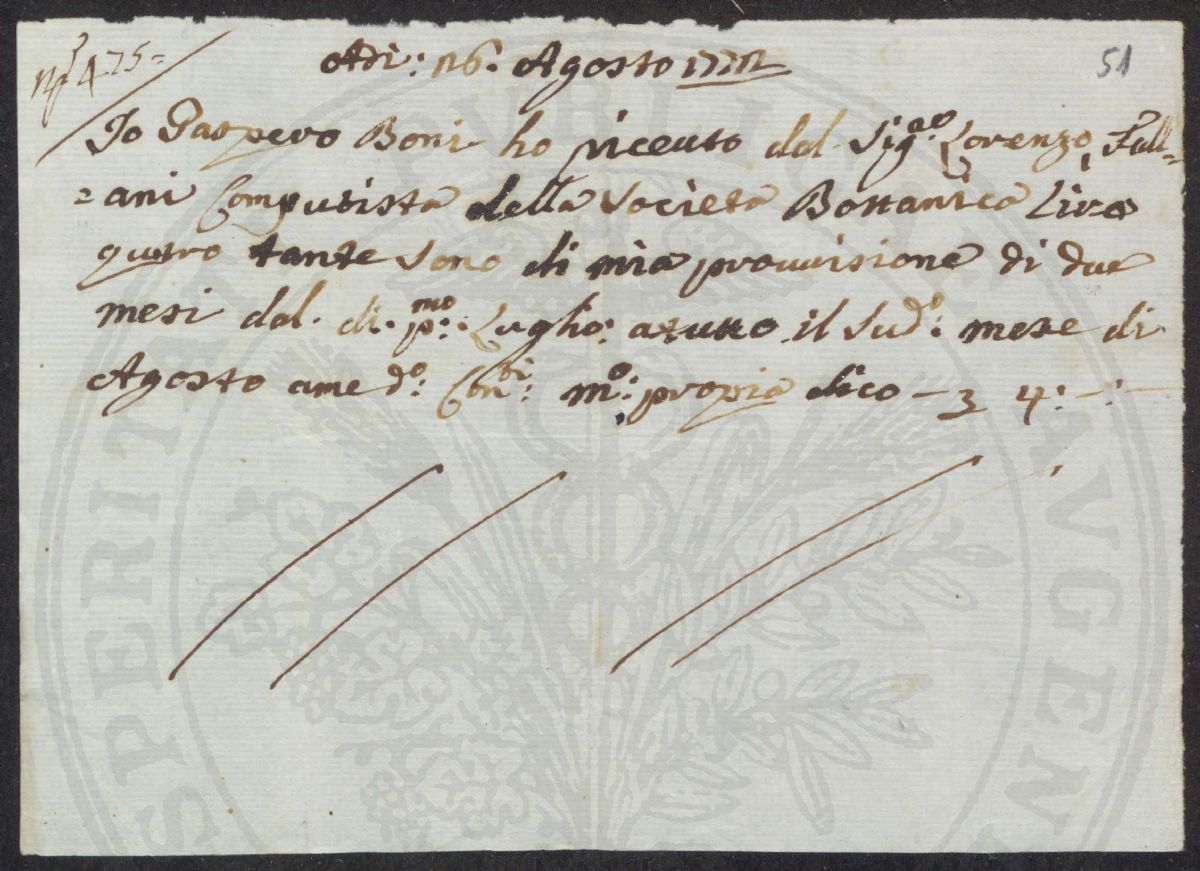 Nº 475=
51
Adì: 26. Agosto 1772
Io Gaspero Boni ho riceuto dal Sig.re Lorenzo, Full=
=ani Computista della Società Bottanica Lire
quatro tante sono di mia prouuisione di due
mesi dal. di. p.mo: Luglio: atutto il Sud.o: mese di
Agosto ame d.o: Con.ti: m.o: propia dico — 3 4: -:-
PUBLICAE
AUGEN
SPERITATI